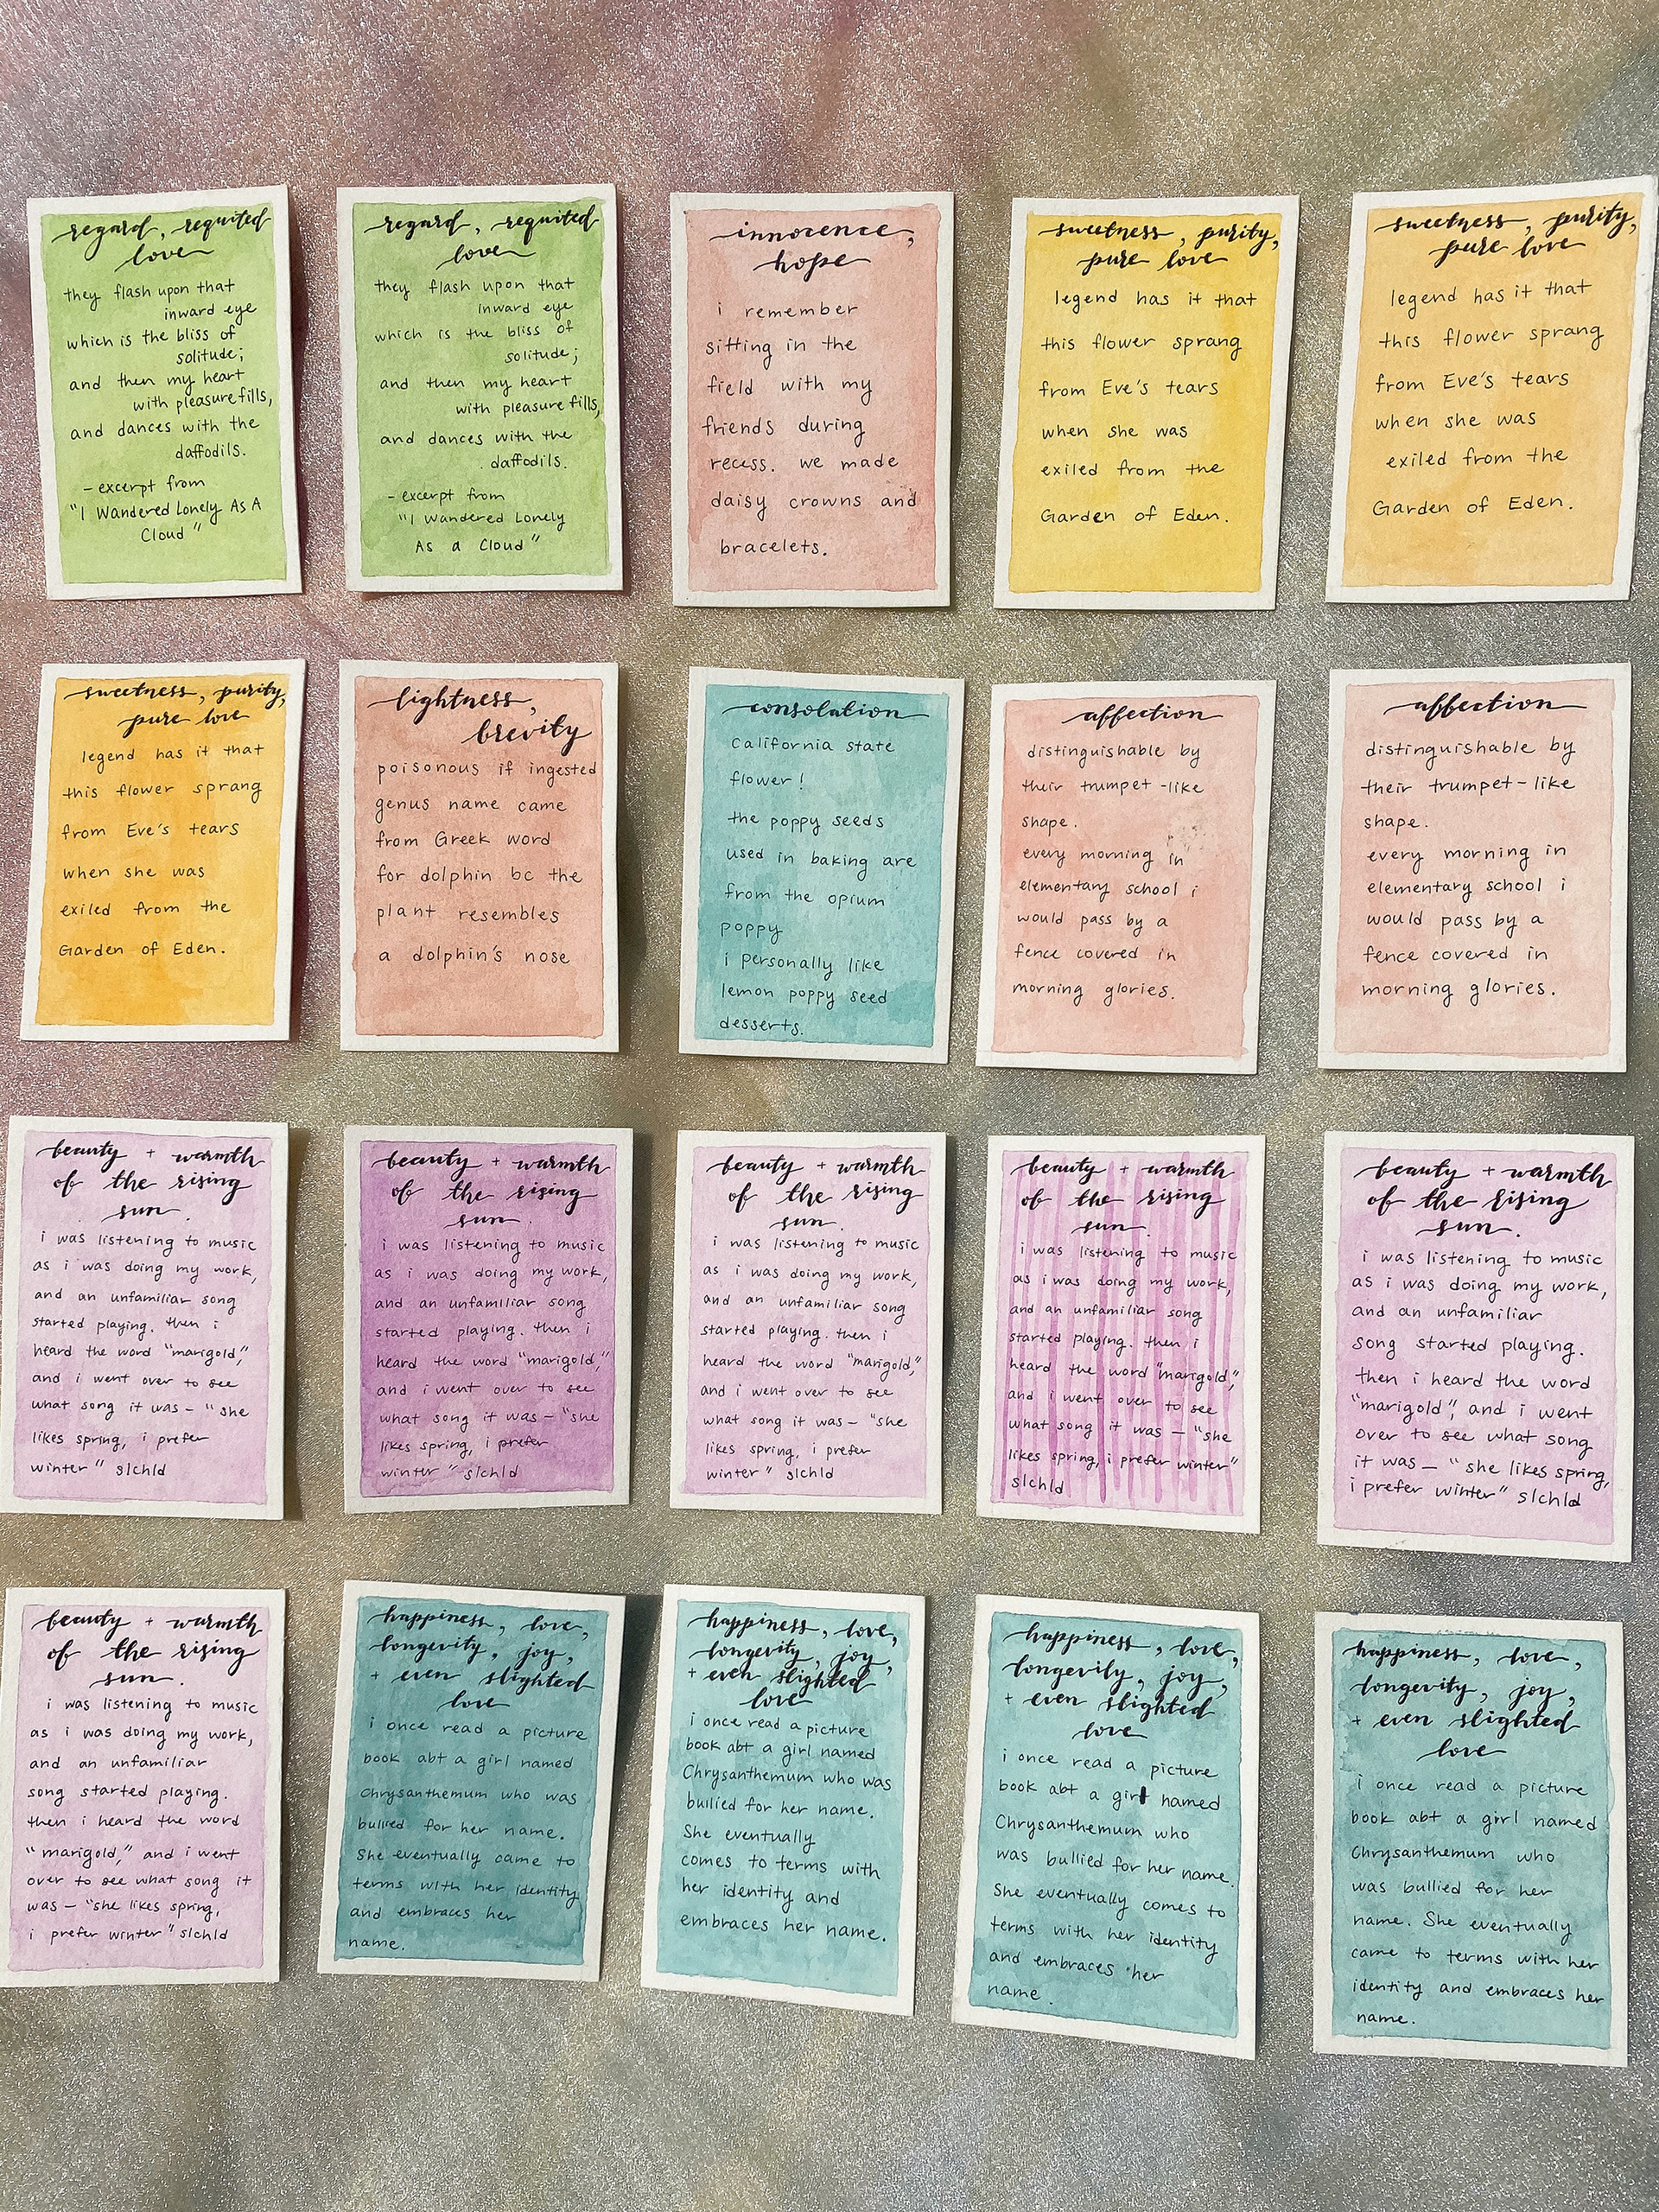 regard, requited
love
they flash upon that
inward eye
which is the bliss of
solitude;
and then my heart
with pleasure fills,
and dances with the
daffodils.
- excerpt from
"I Wandered Lonely As A
Cloud"
regard, requited
love
they flash upon that
inward eye
which is the bliss of
solitude;
and then my heart
with pleasure fills,
and dances with the
daffodils.
- excerpt from
"I Wandered Lonely
As a Cloud"
innocence,
hope
i remember
sitting in the
field with my
friends during
recess. we made
daisy crowns and
bracelets.
sweetness, purity,
pure love
legend has it that
this flower sprang
from Eve's tears
when she was
exiled from the
Garden of Eden.
sweetness, purity,
pure love
legend has it that
this flower sprang
from Eve's tears
when she was
exiled from the
Garden of Eden.
sweetness, purity,
pure love
legend has it that
this flower sprang
from Eve's tears
when she was
exiled from the
Garden of Eden.
lightness,
brevity
poisonous if ingested
genus name came
from Greek word
for dolphin bc the
plant resembles
a dolphin's nose
consolation
California state
flower!
the poppy seeds
used in baking are
from the opium
poppy
i personally like
lemon poppy seed
desserts.
affection
distinguishable by
their trumpet-like
shape.
every morning in
elementary school i
would pass by a
fence covered in
morning glories.
affection
distinguishable by
their trumpet-like
shape.
every morning in
elementary school i
would pass by a
fence covered in
morning glories.
beauty + warmth
of the rising
sun.
i was listening to music
as i was doing my work,
and an unfamiliar song
started playing. then i
heard the word "marigold,"
and i went over to see
what song it was - "she
likes spring, i prefer
winter" slchld
beauty + warmth
of the rising
sun.
i was listening to music
as i was doing my work,
and an unfamiliar song
started playing. then i
heard the word "marigold,"
and i went over to see
what song it was - "she
likes spring, i prefer
winter" slchld
beauty + warmth
of the rising
sun.
i was listening to music
as i was doing my work,
and an unfamiliar song
started playing. then i
heard the word "marigold,"
and i went over to see
what song it was - "she
likes spring, i prefer
winter" slchld
beauty + warmth
of the rising
sun.
i was listening to music
as i was doing my work,
and an unfamiliar song
started playing. then i
heard the word "marigold,"
and i went over to see
what song it was - "she
likes spring, i prefer winter"
slchld
beauty + warmth
of the rising
sun.
i was listening to music
as i was doing my work,
and an unfamiliar
song started playing.
then i heard the word
"marigold", and i went
over to see what song
it was - "she likes spring,
i prefer winter" slchld
beauty + warmth
of the rising
sun.
i was listening to music
as i was doing my work,
and an unfamiliar
song started playing.
then i heard the word
"marigold," and i went
over to see what song it
was - "she likes spring,
i prefer winter" slchld
happiness, love,
longevity, joy,
+ even slighted
love
i once read a picture
book abt a girl named
Chrysanthemum who was
bullied for her name.
She eventually came to
terms with her identity
and embraces her
name.
happiness, love,
longevity, joy,
+ even slighted
love
i once read a picture
book abt a girl named
Chrysanthemum who was
bullied for her name.
She eventually
comes to terms with
her identity and
embraces her name.
happiness, love,
longevity, joy,
+ even slighted
love
i once read a picture
book abt a girl named
Chrysanthemum who
was bullied for her name.
She eventually comes to
terms with her identity
and embraces her
name.
happiness, love,
longevity, joy,
+ even slighted
love
i once read a picture
book abt a girl named
Chrysanthemum who
was bullied for her
name. She eventually
came to terms with her
identity and embraces her
name.